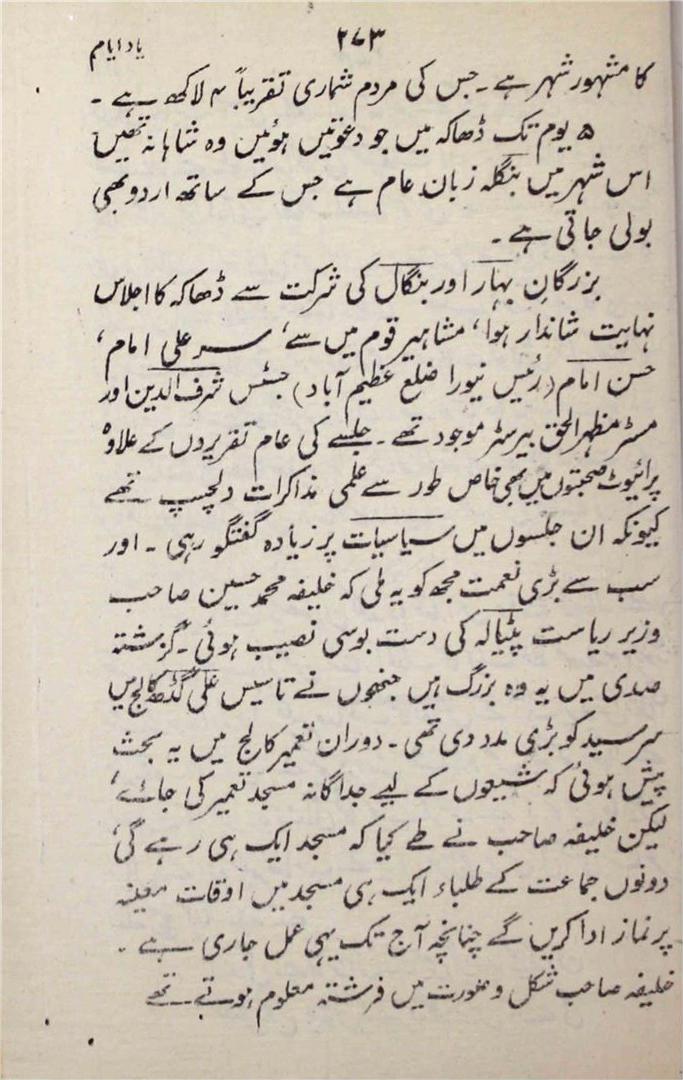 ۲۷۳
یاد ایام
کا مشہور شہر ہے۔ جس کی مردم شماری تقریباً ۴ لاکھ ہے۔
۵ یوم تک ڈھاکہ میں جو دعوتیں ہوئیں وہ شاہانہ تھیں
اس شہر میں بنگلہ زبان عام ہے جس کے ساتھ اردو بھی
بولی جاتی ہے۔
بزرگانِ بہار اور بنگال کی شرکت سے ڈھاکہ کا اجلاس
نہایت شاندار ہوا، مشاہیر قوم میں سے، سر علی امام،
حسن امام (رئیس نیورا ضلع عظیم آباد) جسٹس شرف الدین اور
مسٹر مظہر الحق بیرسٹر موجود تھے۔ جلسے کی عام تقریروں کے علاوہ
پرائیوٹ صحبتوں میں بھی خاص طور سے علمی مذاکرات دلچسپ تھے
کیونکہ ان جلسوں میں سیاسیات پر زیادہ گفتگو رہی۔ اور
سب سے بڑی نعمت مجھ کو یہ ملی کہ خلیفہ محمد حسین صاحب
وزیر ریاست پٹیالہ کی دست بوسی نصیب ہوئی۔ گزشتہ
صدی میں یہ وہ بزرگ ہیں جنھوں نے تاسیس علی گڈھ کالج میں
سرسید کو بڑی مدد دی تھی۔ دوران تعمیر کالج میں یہ بحث
پیش ہوئی کہ شیعوں کے لیے جداگانہ مسجد تعمیر کی جائے،
لیکن خلیفہ صاحب نے طے کیا کہ مسجد ایک ہی رہے گی،
دونوں جماعت کے طلباء ایک ہی مسجد میں اوقات معینہ
پر نماز ادا کریں گے چنانچہ آج تک یہی عمل جاری ہے۔
خلیفہ صاحب شکل و صورت میں فرشتہ معلوم ہوتے تھے